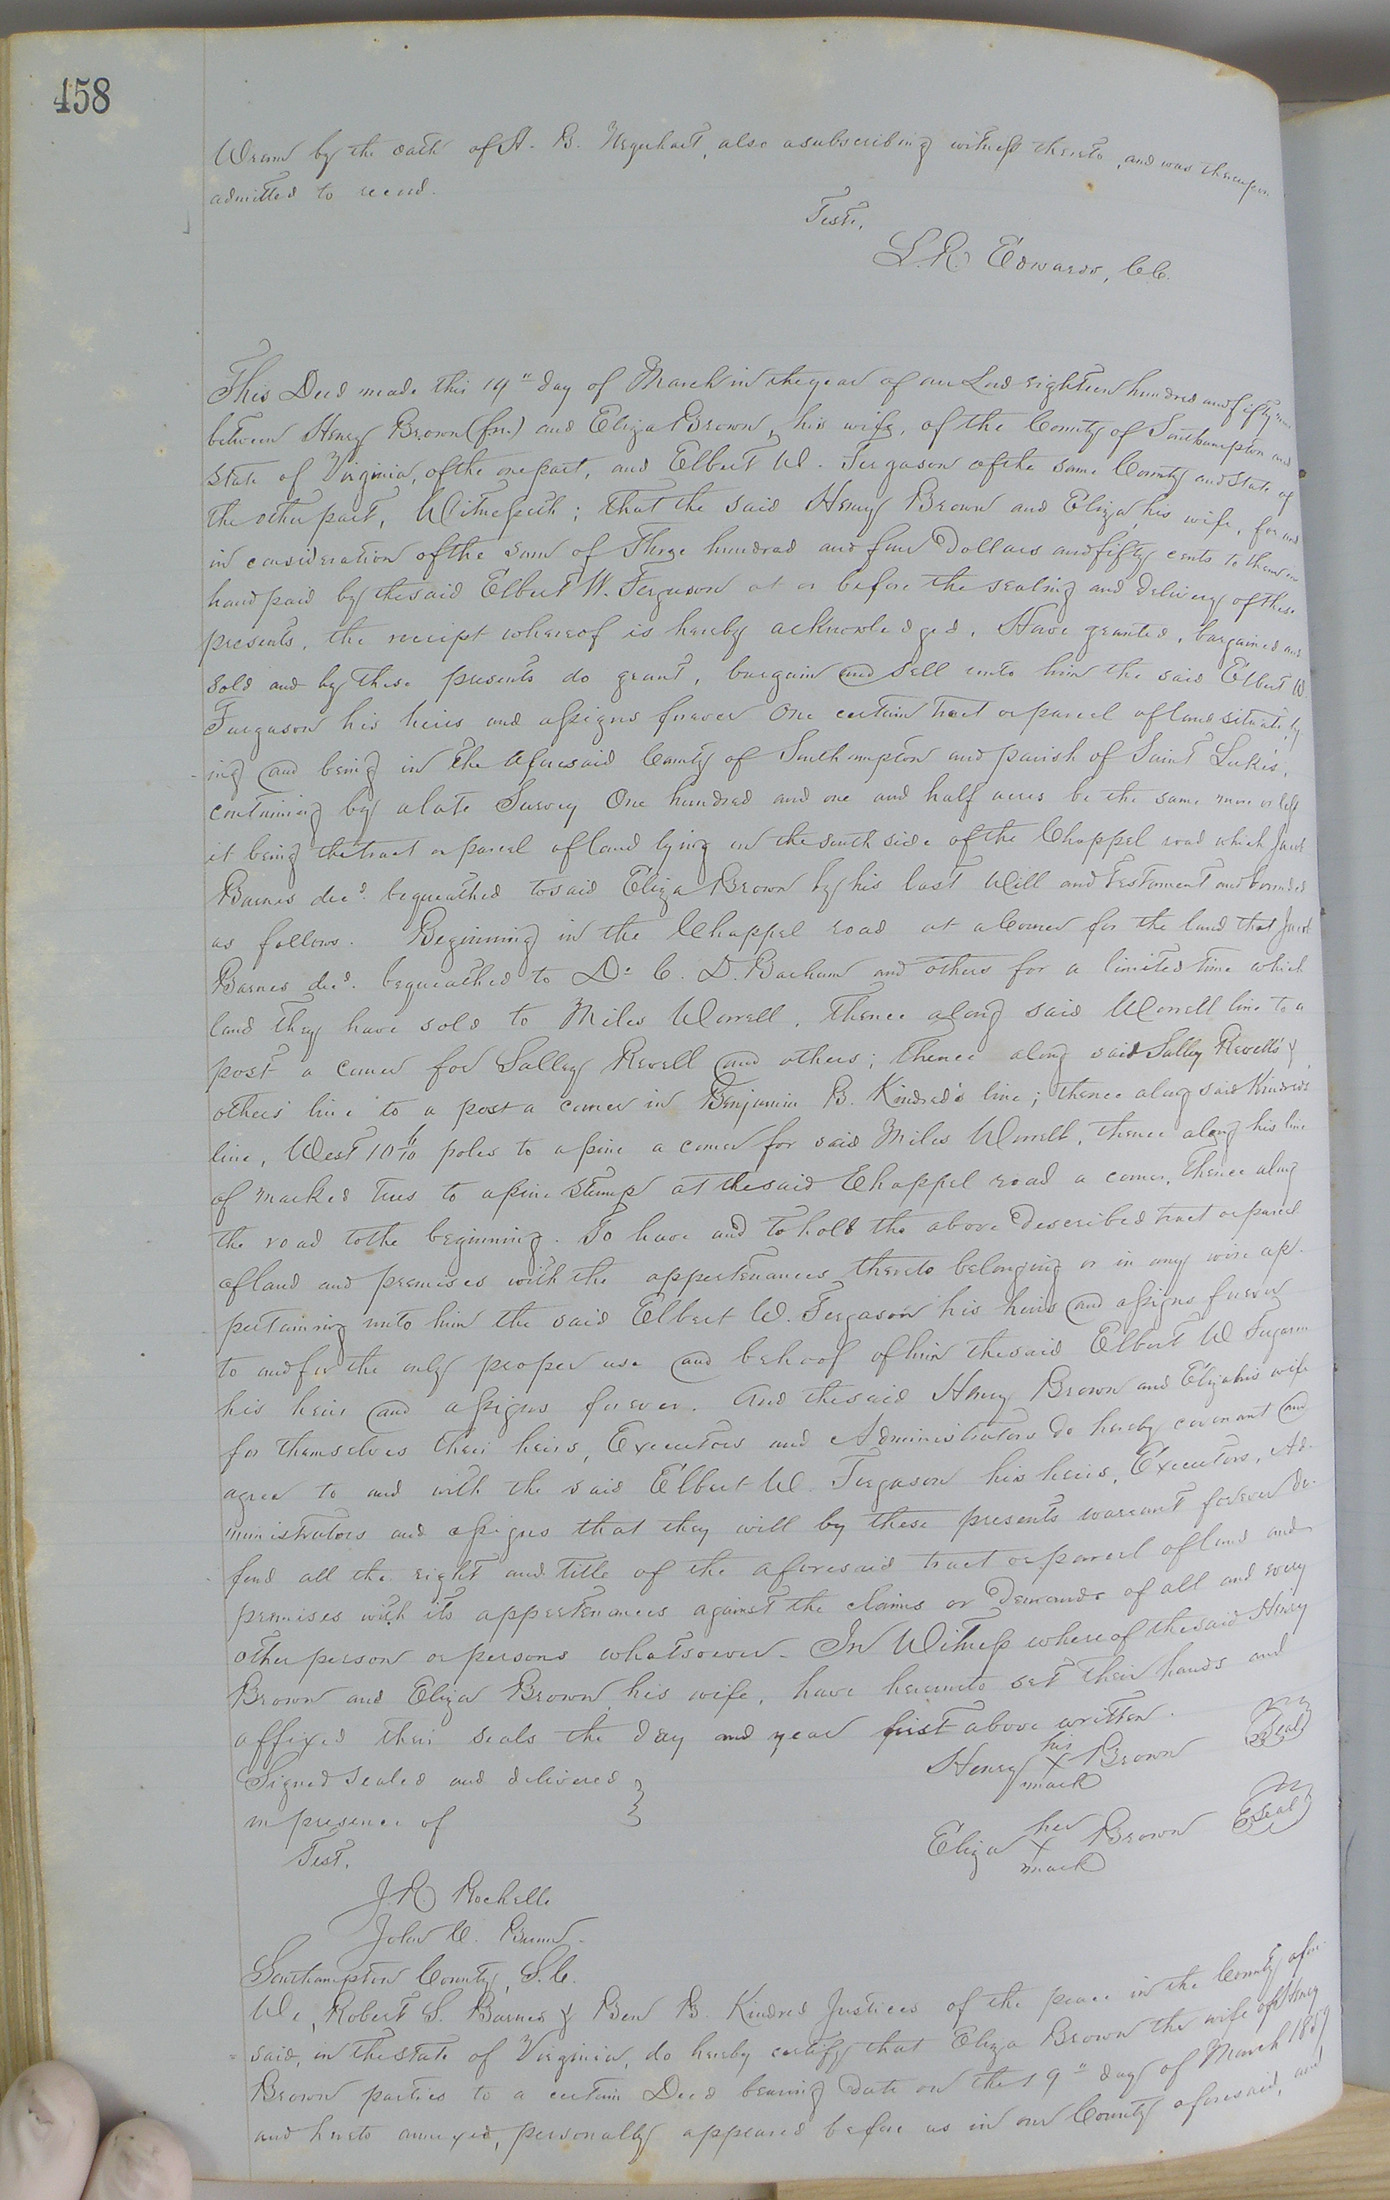 458
by the oath of A. B. Urquhart, also a subscribing witness thereto, and was thereupon
admitted to record.
Teste,
L. R. Edwards, C.C.
This Deed made this 19" day of March in the year of our Lord eighteen hundred and fifty nine
between Henry Brown (fn.) and Eliza Brown, his wife, of the County of Southampton and
State of Virginia, of the one part, and Elbert W. Ferguson of the same County and State of
the other part, Witnesseth; that the said Henry Brown and Eliza, his wife, for and
in consideration of the sum of Three hundred and four Dollars and fifty cents to them in
hand paid by the said Elbert W. Ferguson at or before the sealing and delivery of these
presents, the receipt whereof is hereby acknowledged, Have granted, bargained and
sold and by these presents do grant, bargain and sell unto him the said Elbert W.
Furgason his heirs and assigns forever One certain tract or parcel of land situate ly-
ing and being in the aforesaid County of Southampton and parish of Saint Luke's,
containing by a late Survey One hundred and one and half acres be the same more or less
it being the tract or parcel of land lying on the south side of the Chappel road which Jacob
Barnes decd. bequeathed to said Eliza Brown by his last Will and testament and bounded
as follows. Beginning in the Chappel road at a corner for the land that Jacob
Barnes decd. bequeathed to Dr. C. D. Barham and others for a limited time which
land they have sold to Miles Worrell, thence along said Worrell line to a
post a corner for Salley Revell and others; thence along said Salley Revell's &
others' line to a post a corner in Benjamin B. Kindred's line; thence along said Kindreds
line, West 10 poles to a pine a corner for said Miles Worrell, thence along his line
of marked trees to a pine stump at the said Chappel road a corner, thence along
the road to the beginning. To have and to hold the above described tract or parcel
of land and premises with the appertenances thereto belonging or in any wise ap-
pertaining unto him the said Elbert W. Fergason his heirs and assigns forever
to and for the only proper use and behoof of him the said Elbert W Fergason
his heirs and assigns forever. And the said Henry Brown and Eliza his wife
for themselves their heirs, Executors and Administrators do hereby covenant and
agree to and with the said Elbert W. Fergason his heirs, Executors, Ad-
ministrators and assigns that they will by these presents warrant forever de-
fend all the right and title of the aforesaid tract or parcel of land and
premises with its appertenances against the claims or demands of all and every
other person or persons whatsoever. In Witness whereof the said Henry
Brown and Eliza Brown, his wife, have hereunto set their hands and
affixed their seals the day and year first above written.
Signed sealed and delivered
in presence of
Test.
Henry his X mark Brown Seal
Eliza her X mark Brown Seal
J. R. Rochelle
John W.
Southampton County, S.C.
We, Robert S. Barnes & Ben B. Kindred Justices of the peace in the County afore-
said, in the State of Virginia, do hereby certify that Eliza Brown the wife of Henry
Brown parties to a certain Deed bearing date on the 19" day of March 1859
and hereto annexed, personally appeared before us in our County aforesaid, and